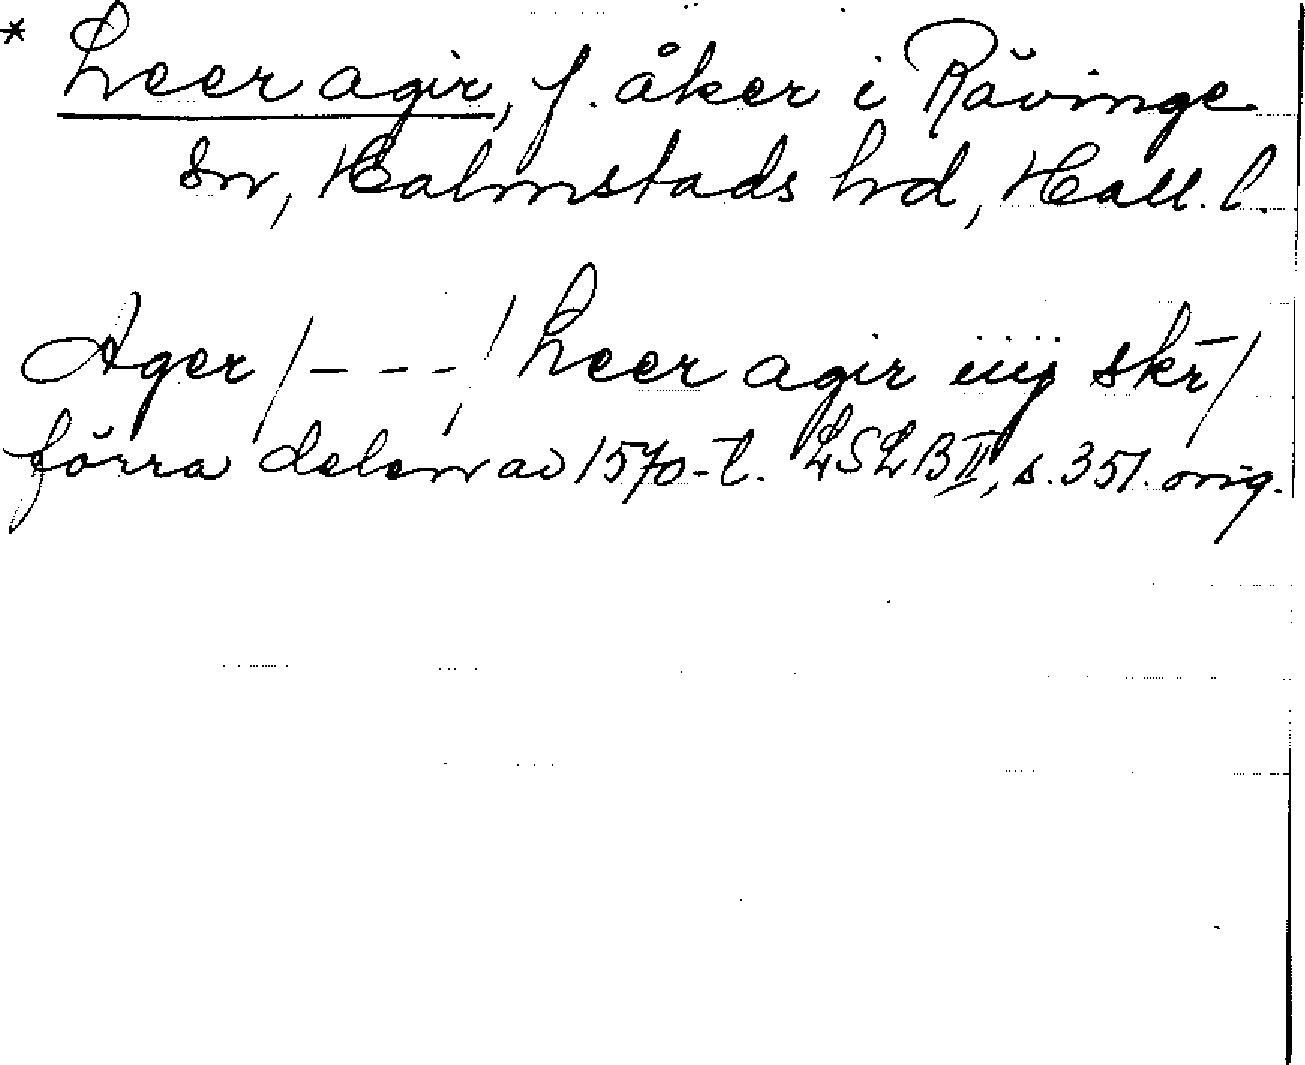 * Leer agir, f. åker i Rävinge
sn, Halmstads hd, Hall. l.
Ager /- - -/ Leer agir iiij skr̄ /
förra delen av 1570-t. LSLB II, s. 351. orig.